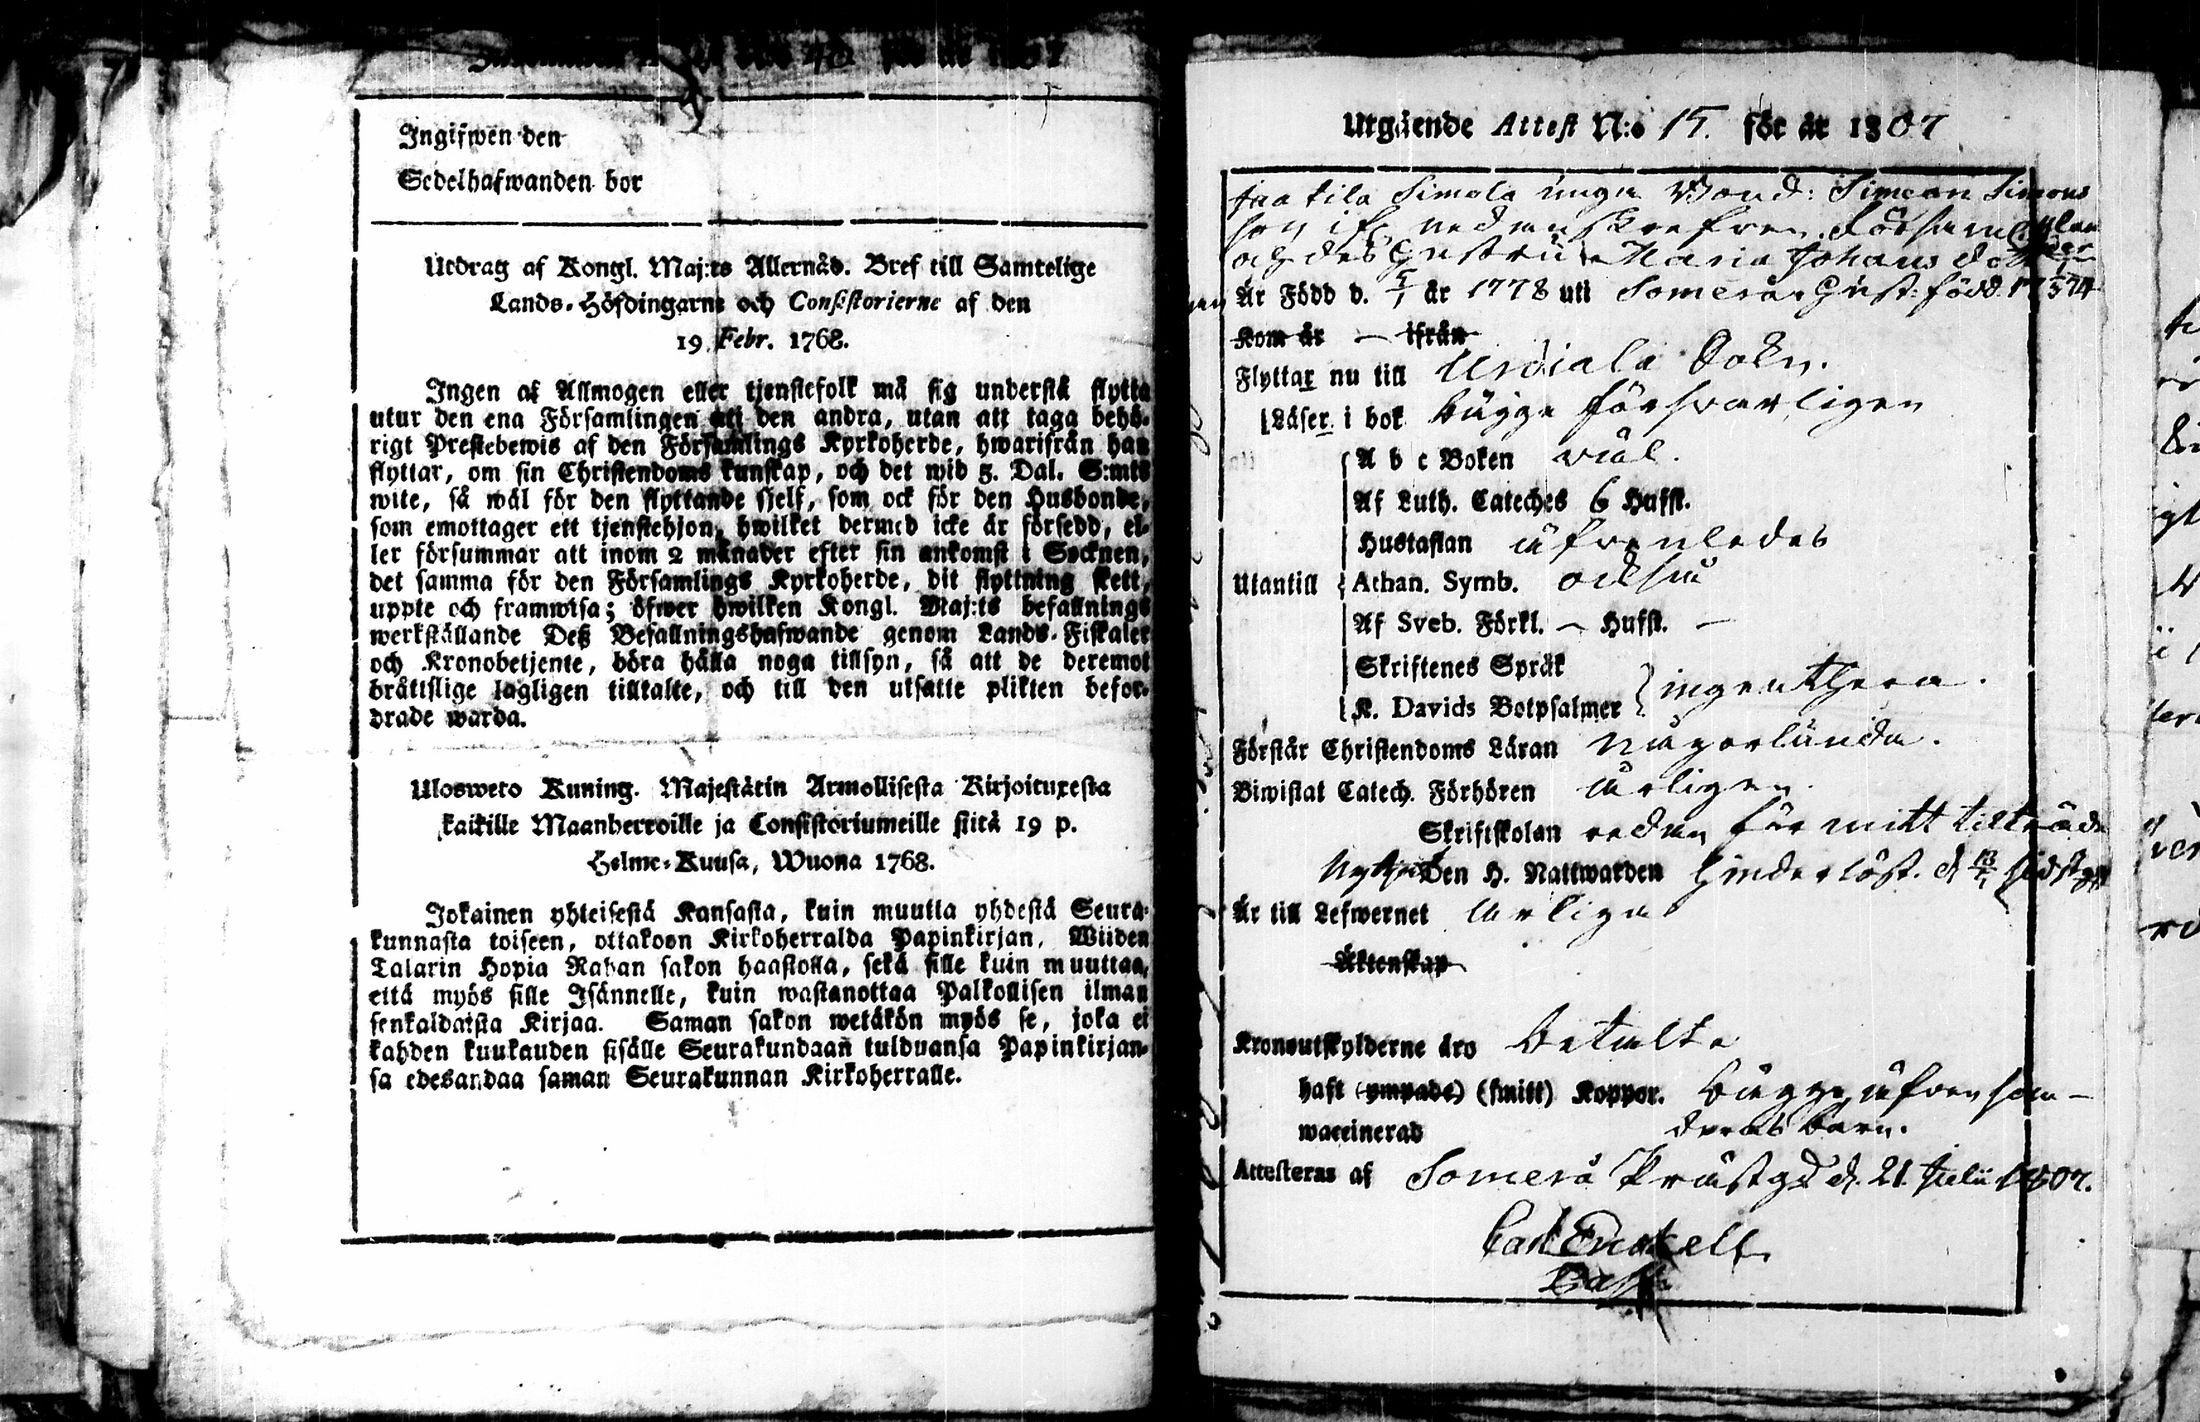 Ingifwen den
Sedelhafwanden bor
Utdrag af Kongl. Maj:ts Allernåd. Bref till Samtelige
Lands-Höfdingarne och Consistorierne af den
19. Febr. 1768.
Ingen af Allmogen eller tjenstefolk må sig understå flytta
utur den ena Församlingen uti den andra, utan att taga behö-
rigt Prestebewis af den Församlings Kyrkoherde, hwarifrån han
flyttar, om sin Christendoms kunskap, och det wid 5. Dal. S:mts
wite, så wäl för den flyttande sjelf, som ock för den Husbonde,
som emottager ett tjenstehjon, hwilket dermed icke är försedd, el-
ler försummar att inom 2 månader efter sin ankomst i Socknen,
det samma för den Församlings Kyrkoherde, dit flyttning skett,
uppte och framwisa; öfwer hwilken Kongl. Maj:ts befallnings
werkställande Deß Befallningshafwande genom Lands-Fiskaler
och Kronobetjente, böra hålla noga tillsyn, så att de deremot
bråttslige lagligen tilltalte, och till den utsatte plikten befor-
drade warda.
Ulosweto Kuning. Majestätin Armollisesta Kirjoituxesta
kaikille Maanherroille ja Consistoriumeille siitä 19 p.
Helme-Kuusa, Wuona 1768.
Jokainen yhteisestä Kansasta, kuin muutta yhdestä Seura-
kunnasta toiseen, ottakoon Kirkoherralda Papinkirjan, Wiiden
Talarin Hopia Rahan sakon haastolla, sekä sille kuin muuttaa,
että myös sille Isännelle, kuin wastanottaa Palkollisen ilman
senkaldaista Kirjaa. Saman sakon wetäkön myös se, joka ei
kahden kuukauden sisälle Seurakundaañ tulduansa Papinkirjan-
sa edesandaa saman Seurakunnan Kirkoherralle.
Utgående Attest N:o 15. för år 1807
Simola unga Bond: Simeon Simons
son if nedanskrefven Församlen
och des Gustru Maria Johans dotter
Är Född d. 5/1 år 1778 uti Somero Gust: född 1774
Kom år — ifrån
Flyttar nu till Urdiala Sokn.
Läser i bok bägge försvarligen
A b c Boken väl.
Af Luth. Cateches 6 Hufst.
Hustaflan äfvenledes
Utantill Athan. Symb. också
Af Sveb. Förkl. — Hufst. —
Skriftenes Språk
K. Davids Botpsalmer ingenthera.
Förstår Christendoms Läran någorlunda.
Biwistat Catech. Förhören årligen.
Skriftskolan redan för mitt tilträde
Nyttjat Den H. Nattwarden hinderlöst. d. 13/7 sidst
Är till Lefwernet ärliga
Äktenskap
Kronoutskylderne äro betalte
haft (ympade) (smitt) Koppor. bägge äfven som
waccinerad deras barn.
Attesteras af Somero Prästgd d. 21 Julii 1807.
Carl Enckell
Past.